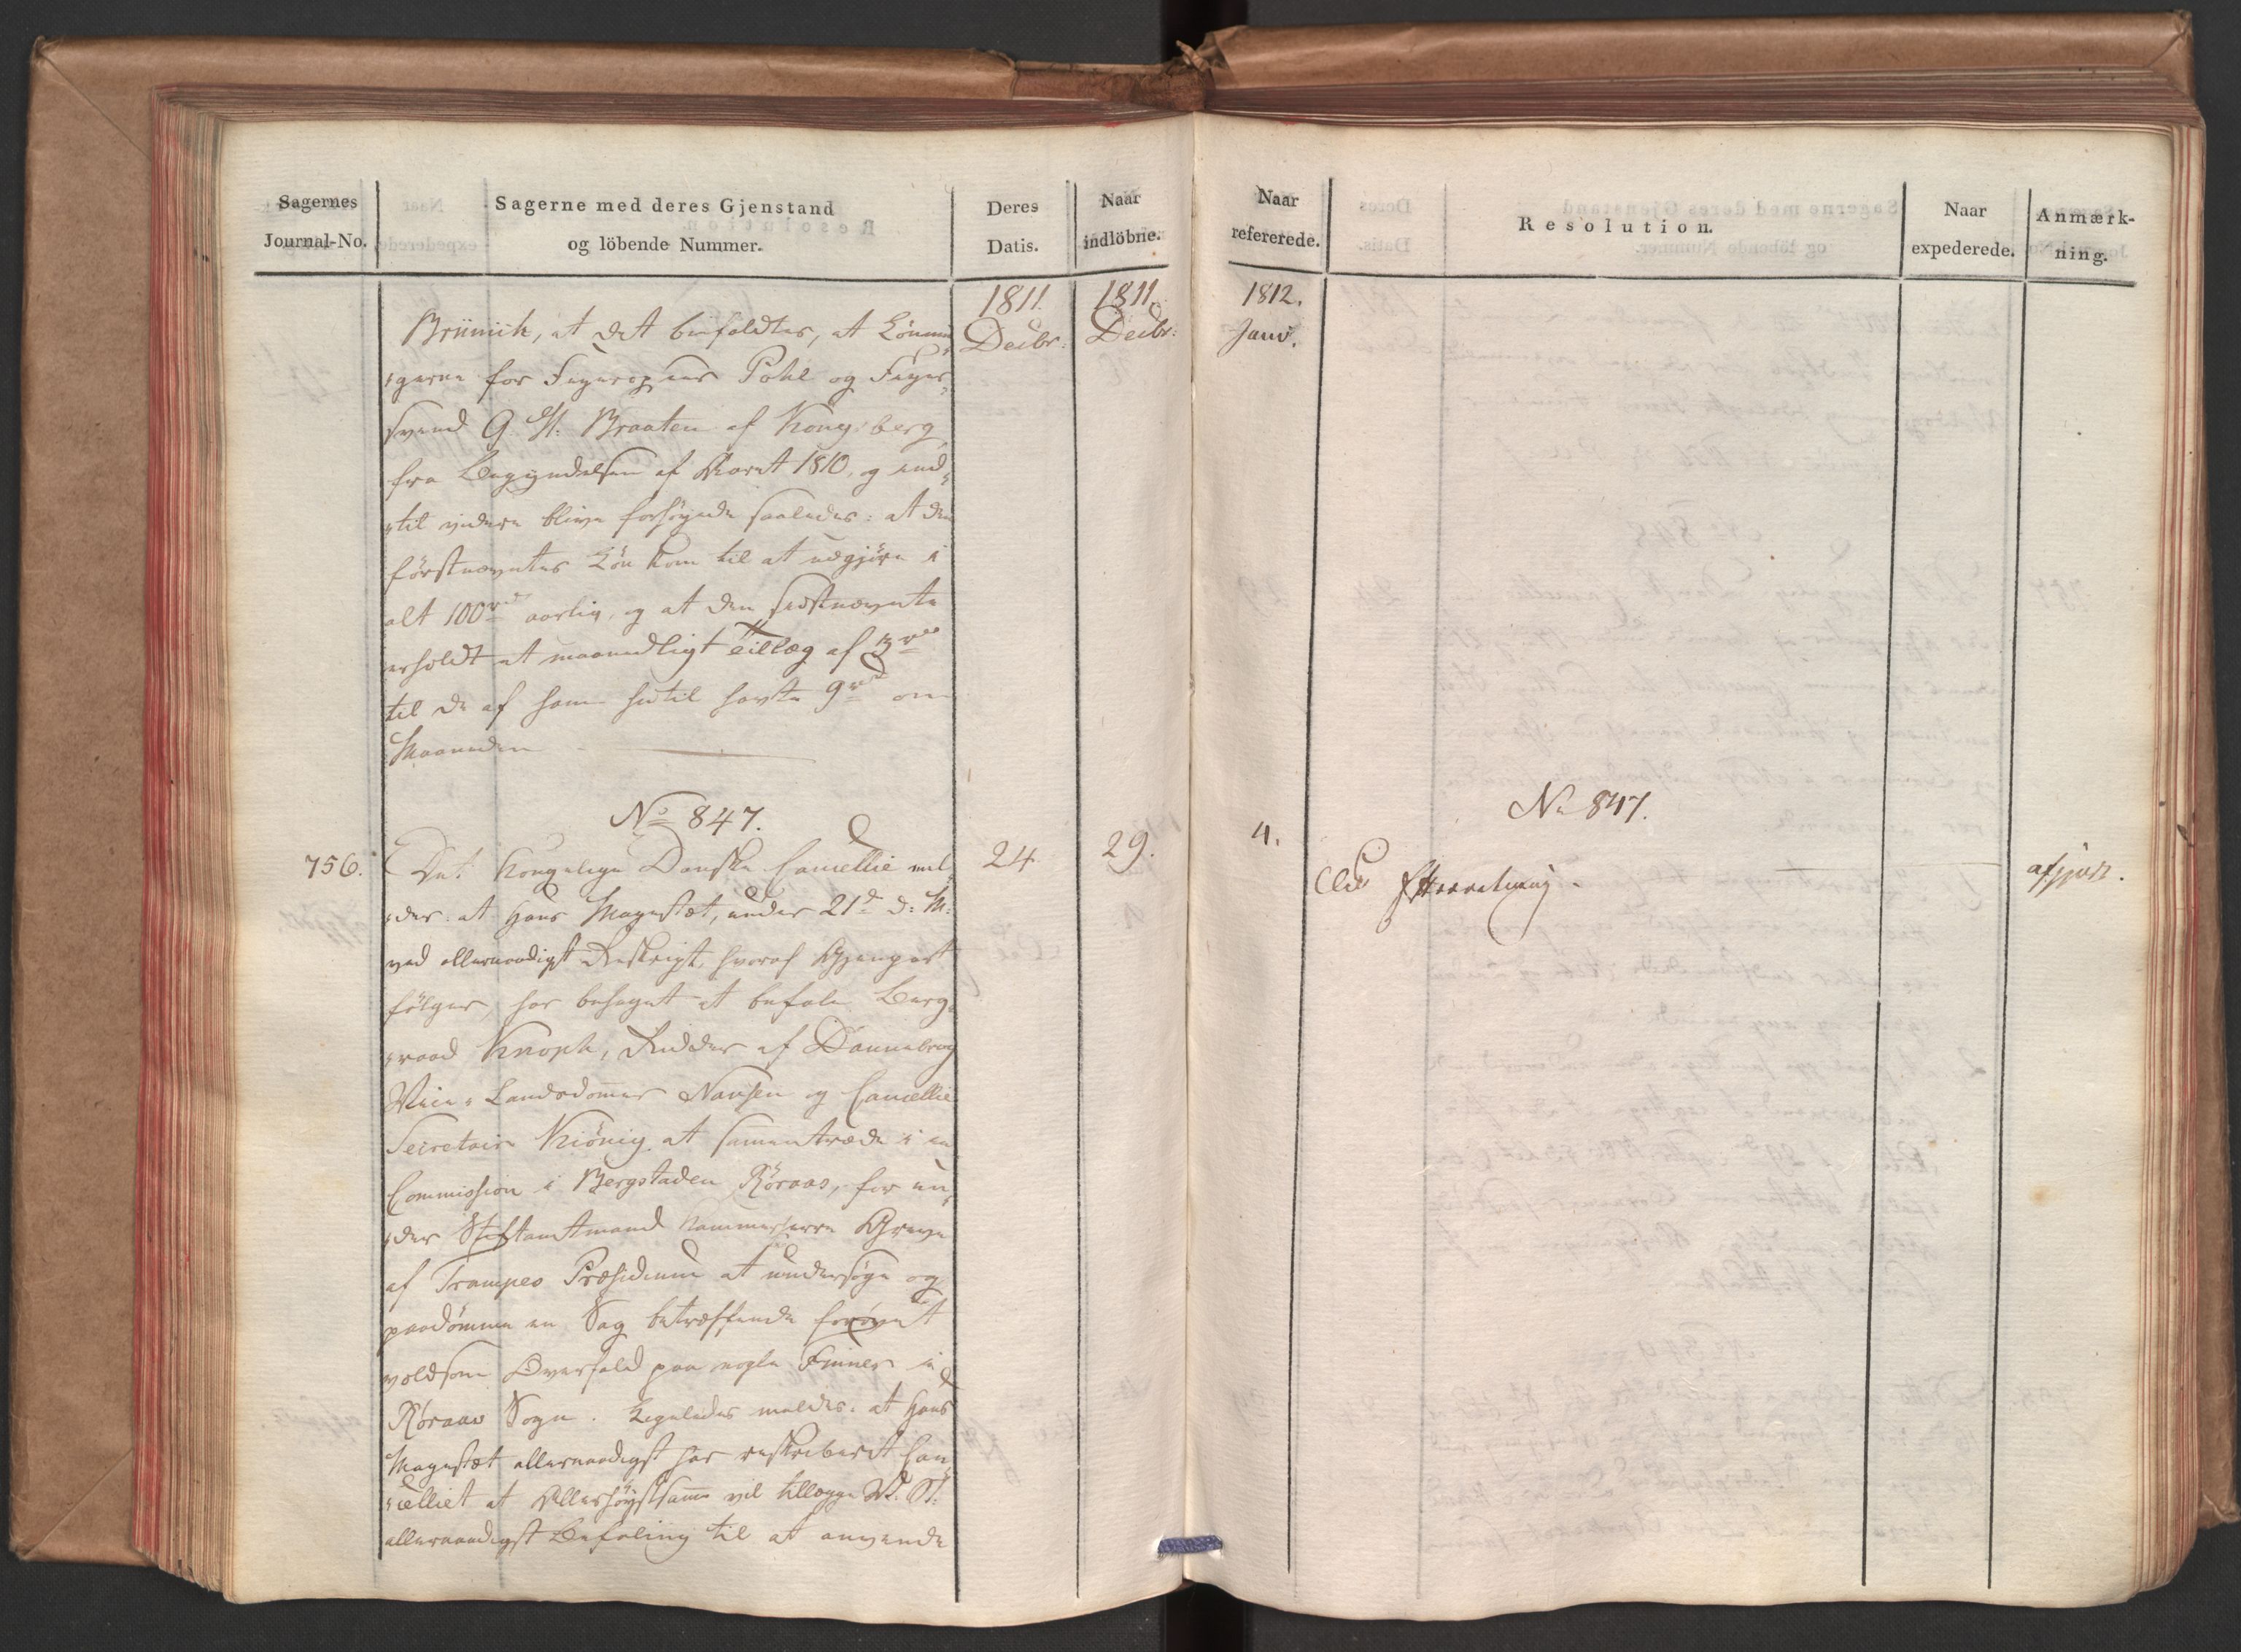 Sagernes
Journal-No.
Sagerne med deres Gjenstand
og löbende Nummer.
Deres
Datis.
Naar
indlöbne.
1811.
Decbr:
1811.
Decbr:
Brünich, at det befaldtes, at Lönnin
gerne for Feyerog Pohl og Feyer
svend G. H. Braaten af Kongsberg
fra Begyndelsen af Aaret 1810, og ind
til videre blive forhöyede saaledes: at den
förstnævntes Lön kom til at udgjöre i
alt 100 rd aarlig, og at den sidstnævnte
erholdt et maanedligt Tillæg af 3 rd
til de af ham hidtil havte 9 rd om
Maaneden
No 847.
756.
Det Kongelige Danske Cancellie mel
der: at Hans Mayestæt, under 21d d: M:
ved allernaadigst Reskript, hvoraf Gjenpart
fölger, har behaget at befale Berg
raad Knoph, Ridder af Dannebrog
Vice-Landsdommer Nansen og Cancellie
Secretair Kiönig at sammentræde i en
Commission i Bergstaden Röraas, for un
der Stiftamtmand Kammerherre Greve
af Trampes Præsidium at undersöge og
paadömme en Sag betræffende forövet
voldsom Overfald paa nogle Finner i
Röraas Sogn. Ligeledes meldes: at Hans
Mayestæt allernaadigst har reskriberet Can
celliet at Allerhöystsamme vil tillægge
allernaadigst Befaling til at anvende
24
29.
Naar
refererede.
Resolution.
Naar
expederede.
Anmærk-
ning.
1812.
Janv.
No 847.
4.
Til Efterretning.
afgjort.